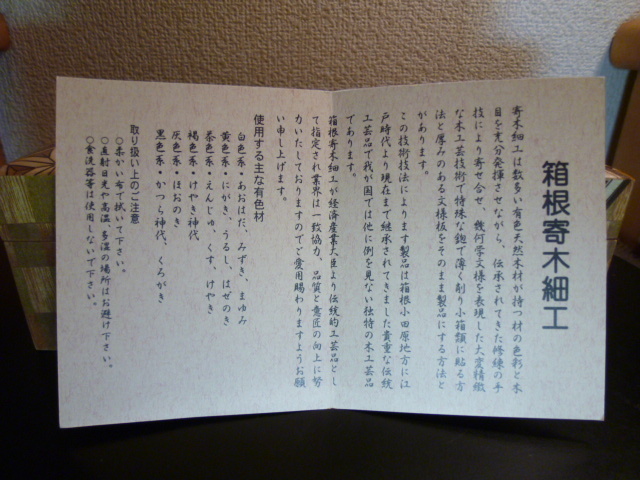 箱根寄木細工
寄木細工は数多い有色天然木材が持つ材の色彩と木
目を充分発揮させながら、伝承されてきた修練の手
技により寄せ合せ、幾何学文様を表現した大変精緻
な木工芸技術で特殊な鉋で薄く削り小箱類に貼る方
法と厚みのある文様板をそのまま製品にする方法と
があります。
この技術技法によります製品は箱根小田原地方に江
戸時代より現在まで継承されてきました貴重な伝統
工芸品で我が国では他に例を見ない独特の木工芸品
であります。
箱根寄木細工が経済産業大臣より伝統的工芸品とし
て指定され業界は一致協力、品質と意匠の向上に努
力いたしておりますのでご愛用賜わりますようお願
い申し上げます。
使用する主な有色材
白色系・あおはだ、みずき、まゆみ
黄色系・にがき、うるし、はぜのき
茶色系・えんじゅ、くす、けやき
褐色系・けやき神代
灰色系・ほおのき
黒色系・かつら神代、くろがき
取り扱い上のご注意
○柔かい布で拭いて下さい。
○直射日光や高温、多湿の場所はお避け下さい。
○食洗器等は使用しないで下さい。